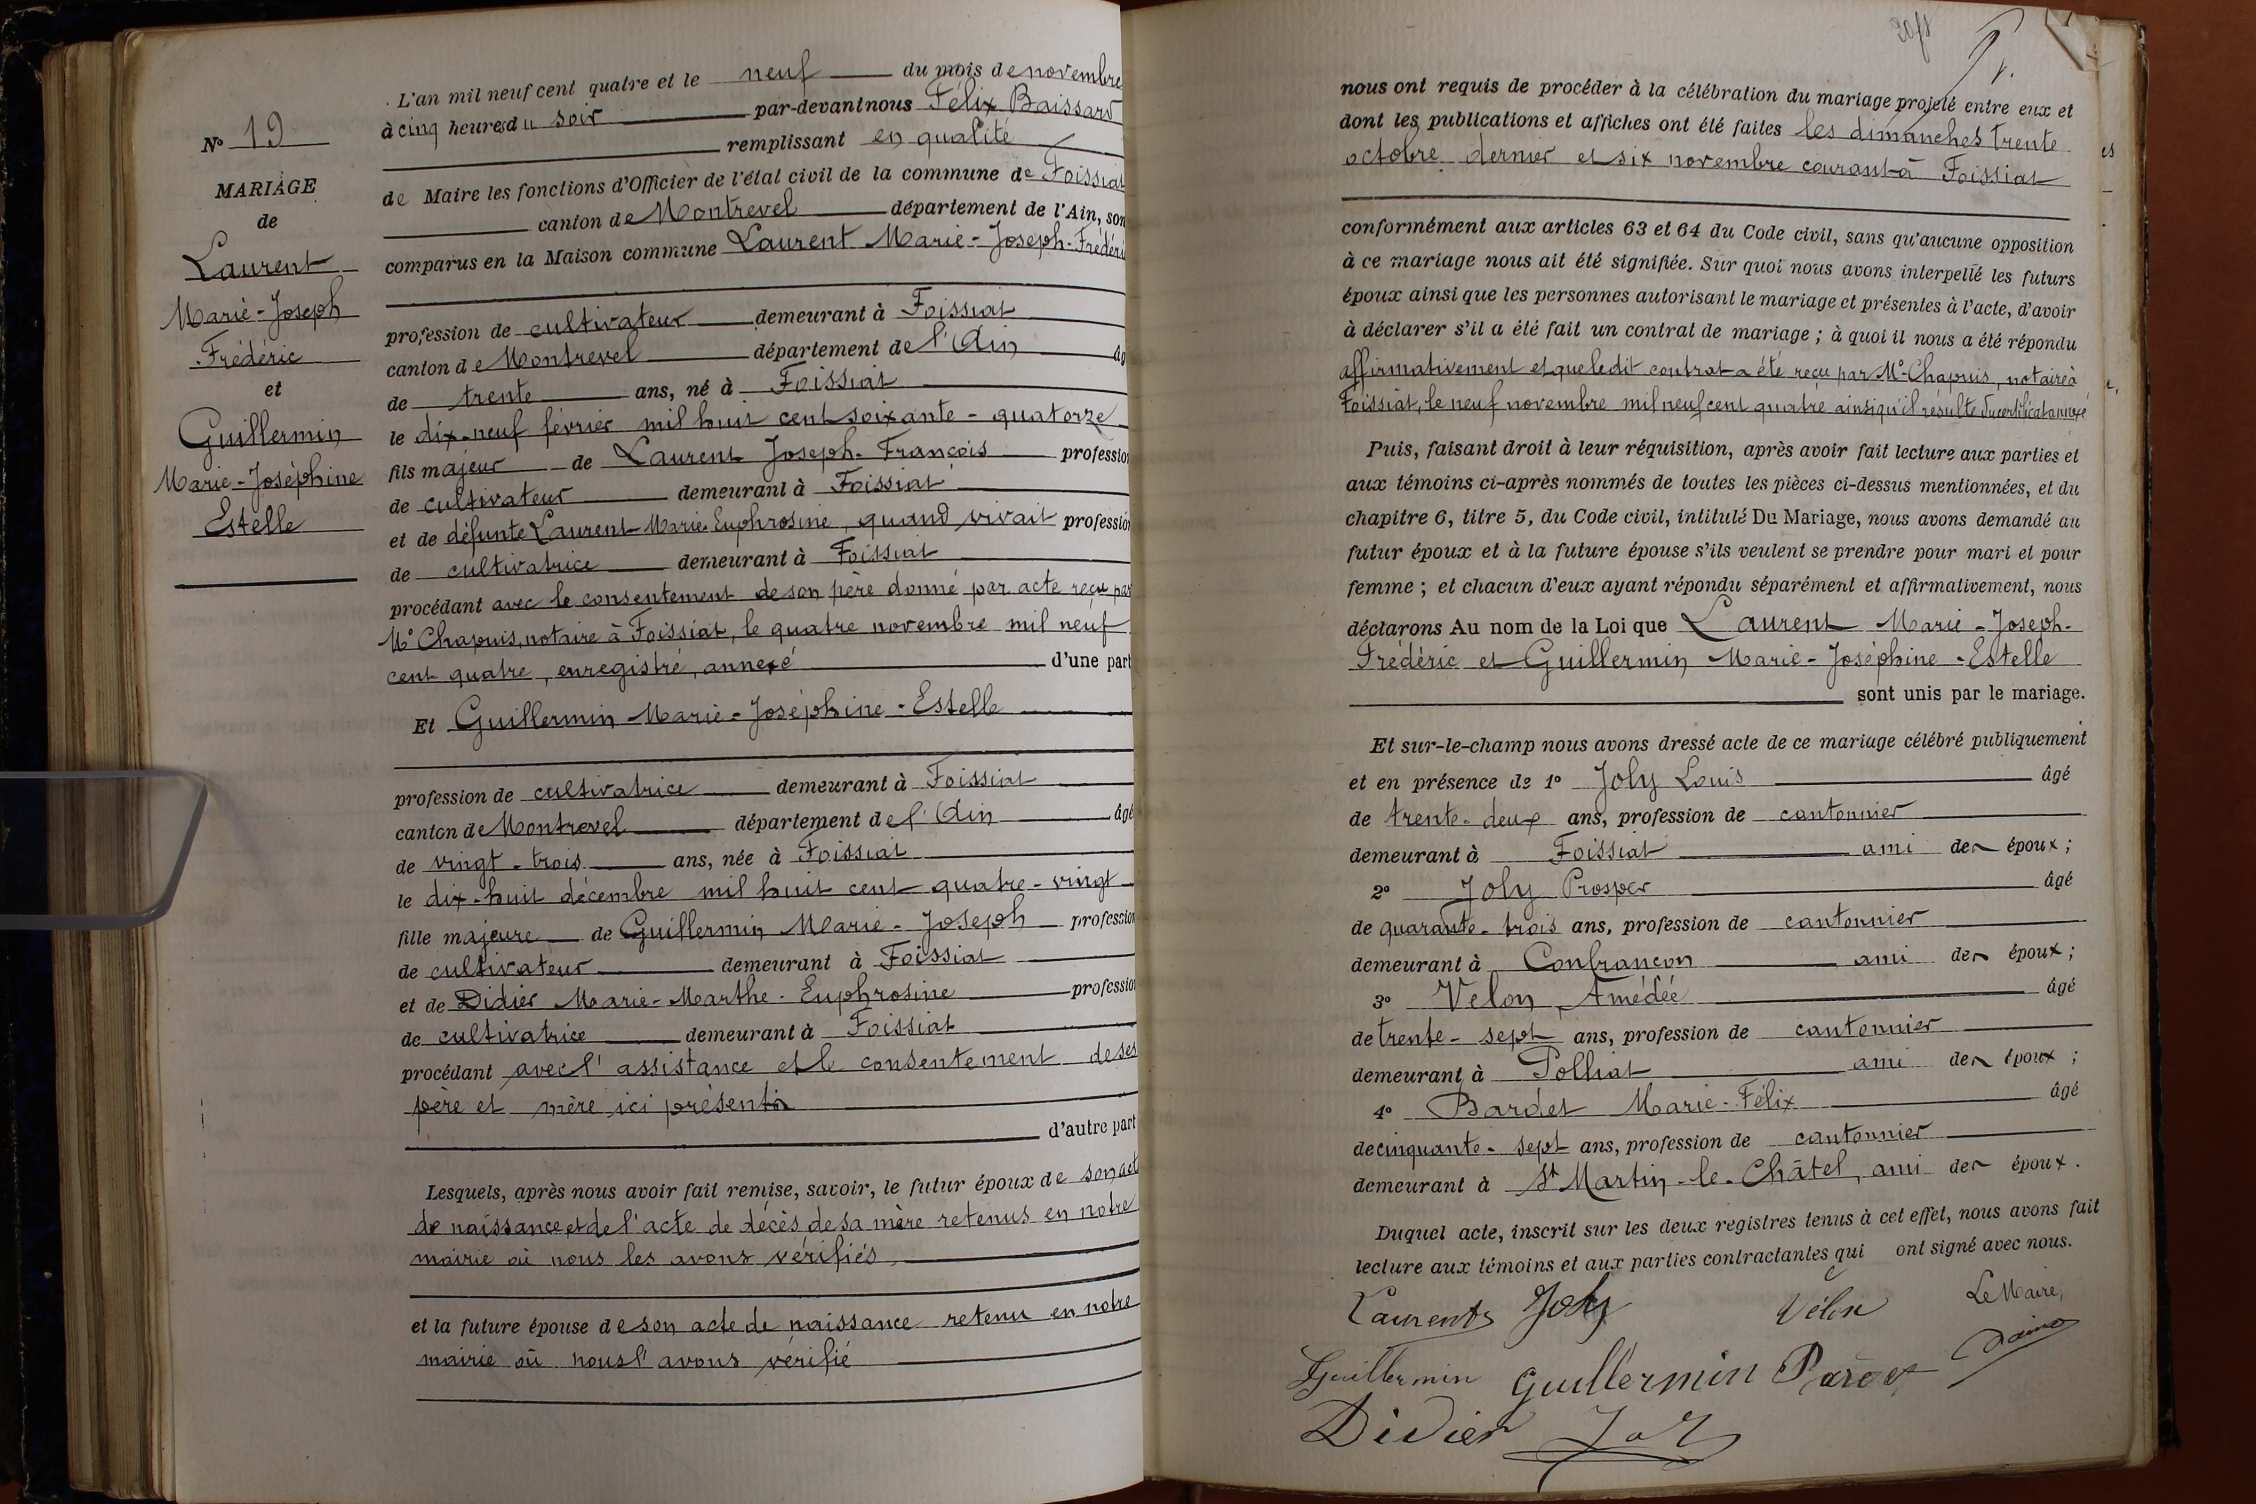 N° 19
MARIAGE
de
Laurent
Marie-Joseph
Frédéric
et
Guillermin
Marie-Joséphine
Estelle
L'an mil neuf cent quatre et le neuf du mois de novembre
à cinq heures du soir par-devant nous Félix Baissard
remplissant en qualité
de Maire les fonctions d'Officier de l'état civil de la commune de Foissiat
canton de Montrevel département de l'Ain, son
comparus en la Maison commune Laurent Marie-Joseph-Frédéri
profession de cultivateur demeurant à Foissiat
canton de Montrevel département de l'Ain âg
de trente ans, né à Foissiat
le dix-neuf février mil huit cent soixante-quatorze
fils majeur de Laurent Joseph-François profession
de cultivateur demeurant à Foissiat
et de défunte Laurent Marie Euphrosine, quand vivait profession
de cultivatrice demeurant à Foissiat
procédant avec le consentement de son père donné par acte reçu par
Me Chapuis, notaire à Foissiat, le quatre novembre mil neuf
cent quatre, enregistré, annexé d'une part
Et Guillermin Marie-Joséphine-Estelle
profession de cultivatrice demeurant à Foissiat
canton de Montrevel département de l'Ain âgé
de vingt-trois ans, née à Foissiat
le dix-huit décembre mil huit cent quatre-vingt
fille majeure de Guillermin Marie-Joseph profession
de cultivateur demeurant à Foissiat
et de Didier Marie-Marthe-Euphrosine profession
de cultivatrice demeurant à Foissiat
procédant avec l'assistance et le consentement de ses
père et mère ici présents
d'autre part
Lesquels, après nous avoir fait remise, savoir, le futur époux de son act
de naissance et de l'acte de décès de sa mère retenus en notre
mairie où nous les avons vérifiés
et la future épouse de son acte de naissance retenu en notre
mairie où nous l'avons vérifié
nous ont requis de procéder à la célébration du mariage projeté entre eux et
dont les publications et affiches ont été faites les dimanches trente
octobre dernier et six novembre courant à Foissiat
conformément aux articles 63 et 64 du Code civil, sans qu'aucune opposition
à ce mariage nous ait été signifiée. Sur quoi nous avons interpellé les futurs
époux ainsi que les personnes autorisant le mariage et présentes à l'acte, d'avoir
à déclarer s'il a été fait un contrat de mariage ; à quoi il nous a été répondu
affirmativement et que ledit contrat a été reçu par Me Chapuis, notaire à
Foissiat, le neuf novembre mil neuf cent quatre ainsi qu'il résulte du certificat annexé
Puis, faisant droit à leur réquisition, après avoir fait lecture aux parties et
aux témoins ci-après nommés de toutes les pièces ci-dessus mentionnées, et du
chapitre 6, titre 5, du Code civil, intitulé Du Mariage, nous avons demandé au
futur époux et à la future épouse s'ils veulent se prendre pour mari et pour
femme ; et chacun d'eux ayant répondu séparément et affirmativement, nous
déclarons Au nom de la Loi que Laurent Marie-Joseph-
Frédéric et Guillermin Marie-Joséphine-Estelle
sont unis par le mariage.
Et sur-le-champ nous avons dressé acte de ce mariage célébré publiquement
et en présence de 1° Joly Louis âgé
de trente-deux ans, profession de cantonnier
demeurant à Foissiat ami des époux ;
2° Joly Prosper âgé
de quarante-trois ans, profession de cantonnier
demeurant à Confrançon ami des époux ;
3° Velon Amédée âgé
de trente-sept ans, profession de cantonnier
demeurant à Polliat ami des époux ;
4° Bardet Marie-Félix âgé
de cinquante-sept ans, profession de cantonnier
demeurant à St Martin-le-Châtel, ami des époux.
Duquel acte, inscrit sur les deux registres tenus à cet effet, nous avons fait
lecture aux témoins et aux parties contractantes qui ont signé avec nous.
Laurent Joly Vélon Le Maire,
Guillermin Guillermin
Didier